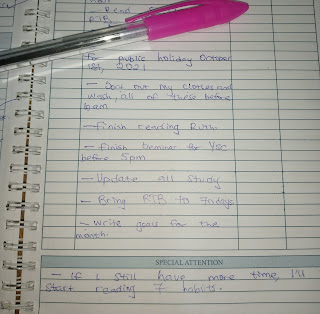 Read
RTB
For public holiday October
1st, 2021
- Sort out my clothes and
wash, all of these before
10am
- Finish reading Ruth
- Finish Seminar for YSC
before 5pm
- Update all study
- Bring RTB to Fridays
- Write goals for the
month.
SPECIAL ATTENTION
- If I still have more time, I'll
start reading 7 habits.